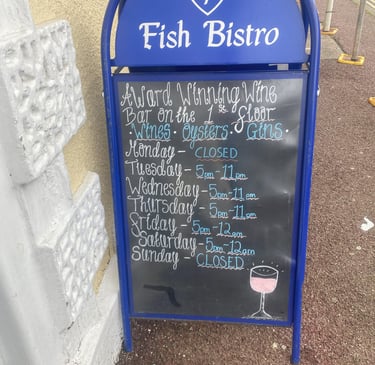 Fish Bistro
Award Winning Wine
Bar on the 1st floor
Wines · Oysters · Gins ·
Monday - CLOSED
Tuesday - 5pm - 11pm
Wednesday - 5pm - 11pm
Thursday - 5pm - 11pm
Friday - 5pm - 12am
Saturday - 5pm - 12am
Sunday - CLOSED